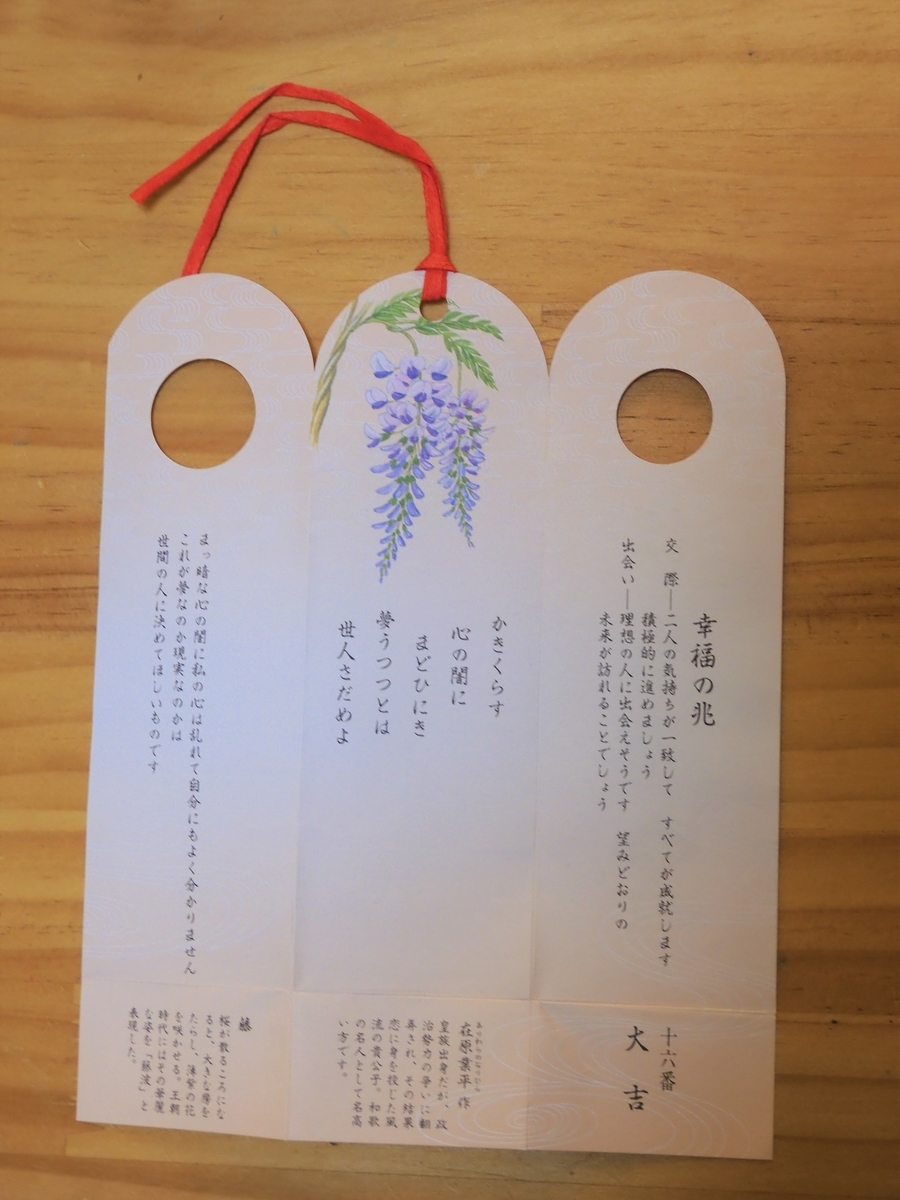 幸福の兆
交　際―二人の気持ちが一致して　すべてが成就します
積極的に進めましょう
出会い―理想の人に出会えそうです　望みどおりの
未来が訪れることでしょう
十六番
大　吉
かきくらす
心の闇に
まどひにき
夢うつつとは
世人さだめよ
ありわらのなりひら
在原業平　作
皇族出身だが、政
治勢力の争いに翻
弄され、その結果
恋に身を投じた風
流の貴公子。和歌
の名人として名高
い方です。
まっ暗な心の闇に私の心は乱れて自分にもよく分かりません
これが夢なのか現実なのかは
世間の人に決めてほしいものです
藤
桜が散るころにな
ると、大きな房を
たらし、薄紫の花
を咲かせる。王朝
時代にはその華麗
な姿を「藤波」と
表現した。